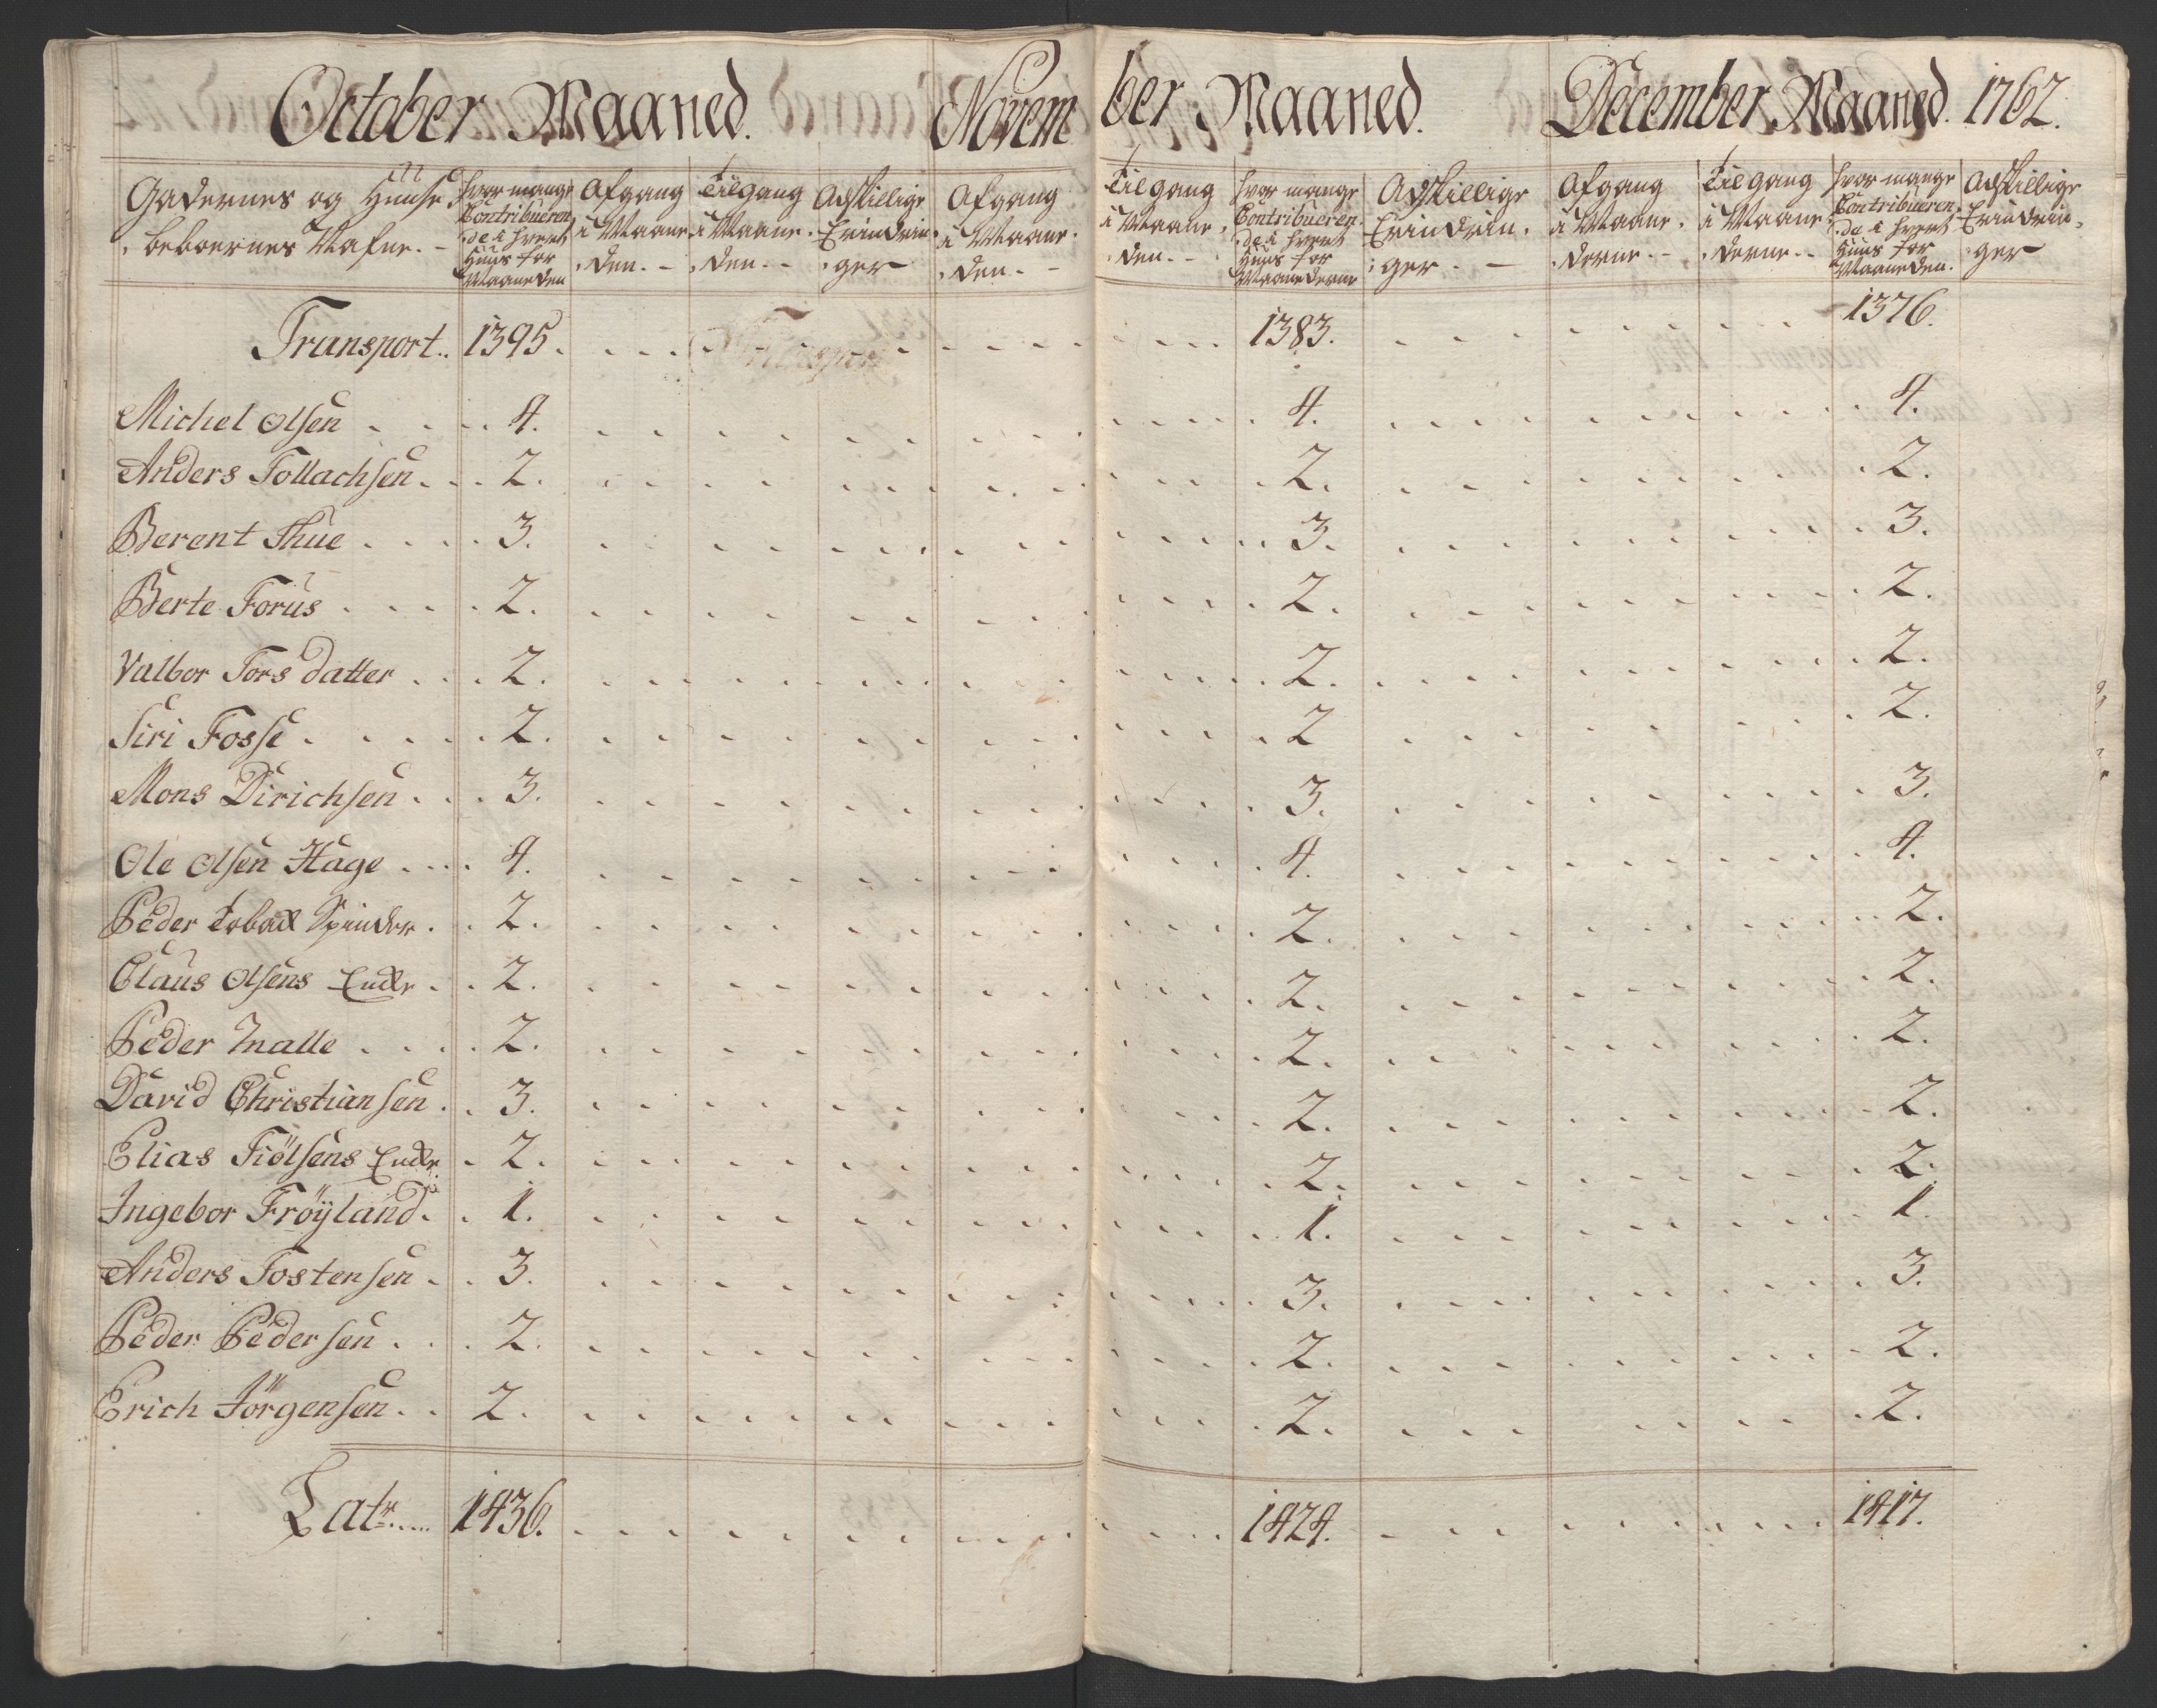 October Maaned. November Maaned. December Maaned. 1762.
Gadernes og Huuse beboernes Nafne. - | hvor mange Contribueren de i hvert Huus for Maaneden | Afgang i Maane den. - | Tilgang i Maane den. - | Adskillige Erindrin ger | Afgang i Maane den. - | Tilgang i Maane den. - | hvor mange Contribueren de i hvert Huus for Maanederne | Adskillige Erindrin ger. - | Afgang i Maane derne. - | Tilgang i Maane derne. - | hvor mange Contribueren de i hvert Huus for Maaneden. | Adskillige Erindrin ger
Transport.. 1395. 1383. 1376.
Michel Olsen 4. 4. 4.
Anders Tollachsen 2. 2. 2.
Berent Thue 3. 3. 3.
Berte Forus 2. 2. 2.
Valbor Tors datter 2. 2. 2.
Siri Fosse 2. 2 2.
Mons Dirichsen 3. 3. 3.
Ole Olsen Hage 4. 4. 4.
Peder Spinder 2. 2. 2.
Claus Olsens Enke 2. 2. 2.
Peder Malle 2. 2. 2.
David Christiansen 3. 2. 2.
Elias Fiölsens Enke 2. 2. 2.
Ingebor Fröÿland 1. 1. 1.
Anders Tostensen 3. 3. 3.
Peder Pedersen 2. 2. 2.
Erich Jörgensen 2. 2. 2.
Latr. 1436. 1424. 1417.